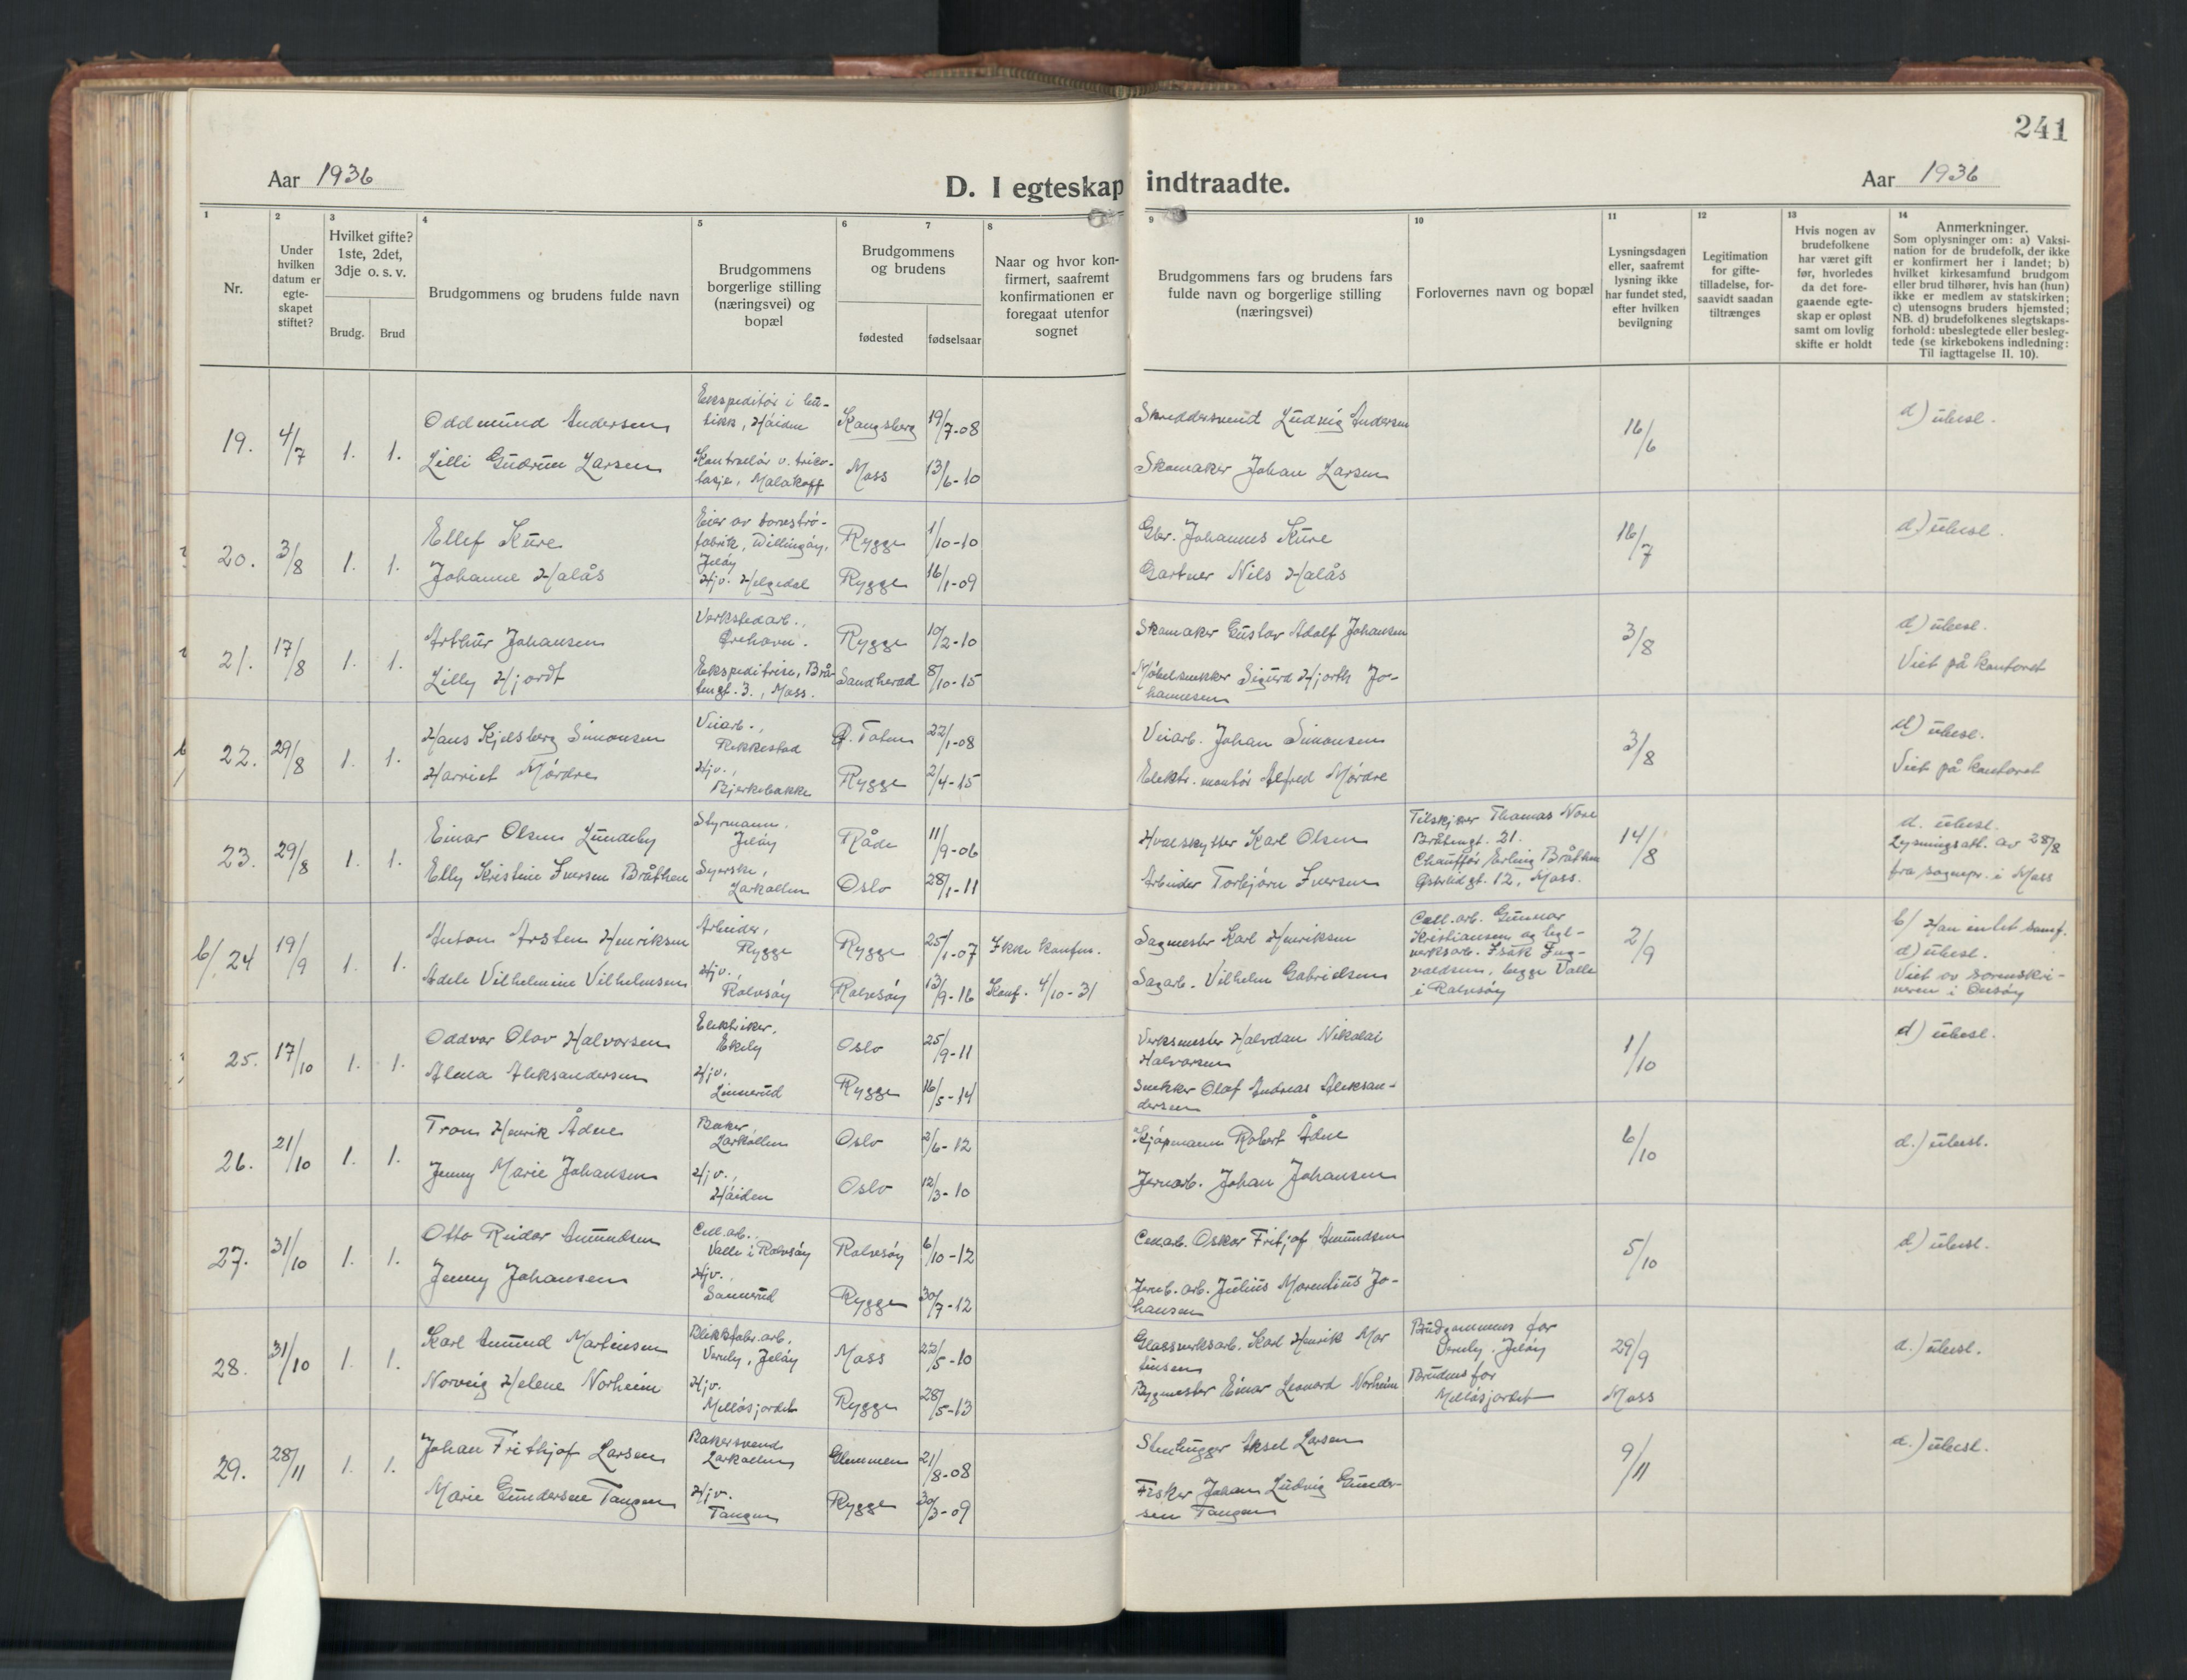 241
Aar 1936
D. I egteskap indtraadte.
Aar 1936
1
2
3
4
5
6
7
8
9
10
11
12
13
14
Nr.
Under
hvilken
datum er
egte-
skapet
stiftet?
Hvilket gifte?
1ste, 2det,
3dje o. s. v.
Brudg.
Brud
Brudgommens og brudens fulde navn
Brudgommens
borgerlige stilling
(næringsvei) og
bopæl
Brudgommens
og brudens
fødested
fødselsaar
Naar og hvor kon-
firmert, saafremt
konfirmationen er
foregaat utenfor
sognet
Brudgommens fars og brudens fars
fulde navn og borgerlige stilling
(næringsvei)
Forlovernes navn og bopæl
Lysningsdagen
eller, saafremt
lysning ikke
har fundet sted,
efter hvilken
bevilgning
Legitimation
for gifte-
tilladelse, for-
saavidt saadan
tiltrænges
Hvis nogen av
brudefolkene
har været gift
før, hvorledes
da det fore-
gaaende egte-
skap er opløst
samt om lovlig
skifte er holdt
Anmerkninger.
Som oplysninger om: a) Vaksi-
nation for de brudefolk, der ikke
er konfirmert her i landet; b)
hvilket kirkesamfund brudgom
eller brud tilhører, hvis han (hun)
ikke er medlem av statskirken;
c) utensogns bruders hjemsted;
NB. d) brudefolkenes slegtskaps-
forhold: ubeslegtede eller besleg-
tede (se kirkebokens indledning:
Til iagttagelse II. 10).
19. 4/7 1. 1.
Oddmund Andersen
Lilli Gudrun Larsen
Ekspeditør i bu-
tikk, Håiden
Kontrollør v. triko-
tasje, Malakoff
Kongsberg 19/7-08
Moss 13/6-10
Skreddersvend Ludvig Andersen
Skomaker Johan Larsen
16/6
d) ubesl.
20. 3/8 1. 1.
Ellef Kure
Johanne Halås
Eier av torvstrø-
fabrik, Dillingøy,
Jeløy
Hjv. Helgedal
Rygge 1/10-10
Rygge 16/1-09
Gbr. Johannes Kure
Gartner Nils Halås
16/7
d) ubesl.
21. 17/8 1. 1.
Arthur Johansen
Lilly Hjordt
Verkstedarb.,
Ørehavn.
Ekspeditrise, Brå-
tengt. 3., Moss.
Rygge 10/2-10
Sandherad 8/10-15
Skomaker Gustav Adolf Johansen
Møbelsnekker Sigurd Hjorth Jo-
hannesen
3/8
d) ubesl.
Viet på kontoret
22. 29/8 1. 1.
Hans Kjelsberg Simonsen
Harriet Mørdre
Veiarb.,
Rakkestad
Hjv.,
Bjerkebakke
Ø. Toten 22/1-08
Rygge 2/4-15
Veiarb. Johan Simonsen
Elektr. montør Alfred Mørdre
3/8
d) ubesl.
Viet på kontoret
23. 29/8 1. 1.
Einar Olsen Lundeby
Elly Kristine Iversen Bråthen
Styrmann,
Jeløy
Syerske,
Larkollen
Råde 11/9-06
Oslo 28/1-11
Hvalskytter Karl Olsen
Arbeider Torbjørn Iversen
Tilskjærer Thomas
Bråtengt. 21.
Chauffør Erling Bråthen
gt. 12, Moss.
14/8
d. ubesl.
Lysningsatt. av 28/8
fra sognepr. i Moss
b/ 24 19/9 1. 1.
Anton Arsten Henriksen
Adele Vilhelmine Vilhelmsen
Arbeider,
Rygge
Hjv.,
Rolvsøy
Rygge 25/1-07
Rolvsøy 13/9-16
Ikke konfirm.
Konf. 4/10-31
Sagmester Karl Henriksen
Sagarb. Vilhelm Gabrielsen
Cell.arb. Gunnar
Kristiansen og tegl-
verksarb. Isak Ing-
valdsen, begge Valle
i Rolvsøy
2/9
b/ Han intet samf.
d) ubesl.
Viet av sorenskri-
veren i Onsøy
25. 17/10 1. 1.
Oddvar Olav Halvorsen
Alma Aleksandersen
Elektriker,
Ekely
Hjv.
Linnerud
Oslo 25/9-11
Rygge 16/5-14
Verksmester Halvdan Nikolai
Halvorsen
Snekker Olaf Andreas Aleksan-
dersen
1/10
d) ubesl.
26. 21/10 1. 1.
Henrik Ådne
Jenny Marie Johansen
Baker
Larkollen
Hjv.,
Håiden
Oslo 2/6-12
Oslo 12/3-10
Kjøpmann Robert Ådne
Jernarb. Johan Johansen
6/10
d.) ubesl.
27. 31/10 1. 1.
Otto Reidar Amundsen
Jenny Johansen
Cell.arb.,
Valle i Rolvsøy
Hjv.
Sannerud
Rolvsøy 6/10-12
Rygge 30/7-12
Cell.arb. Oskar Fritjof Amundsen
Jernb. arb. Julius Marentius Jo-
hansen
5/10
d) ubesl.
28. 31/10 1. 1.
Karl Amund Martinsen
Norveig Helene Norheim
Blikkfabr.arb.
Varnly, Jeløy
Hjv.
Melløsjordet
Moss 22/5-10
Rygge 28/5-13
Glassverksarb. Karl Henrik Mar
tinsen
Bygmester Einar Leonard Norheim
Brudgommens far
Varnly, Jeløy
Brudens far
Melløsjordet
29/9
Moss
d.) ubesl.
29. 28/11 1. 1.
Johan Frithjof Larsen
Marie Gundersen Tangen
Bakersvend
Larkollen
Hjv.
Tangen
Glemmen 21/8-08
Rygge 30/3-09
Stenhugger Aksel Larsen
Fisker Johan Ludvig Gunder-
sen Tangen
9/11
d.) ubesl.